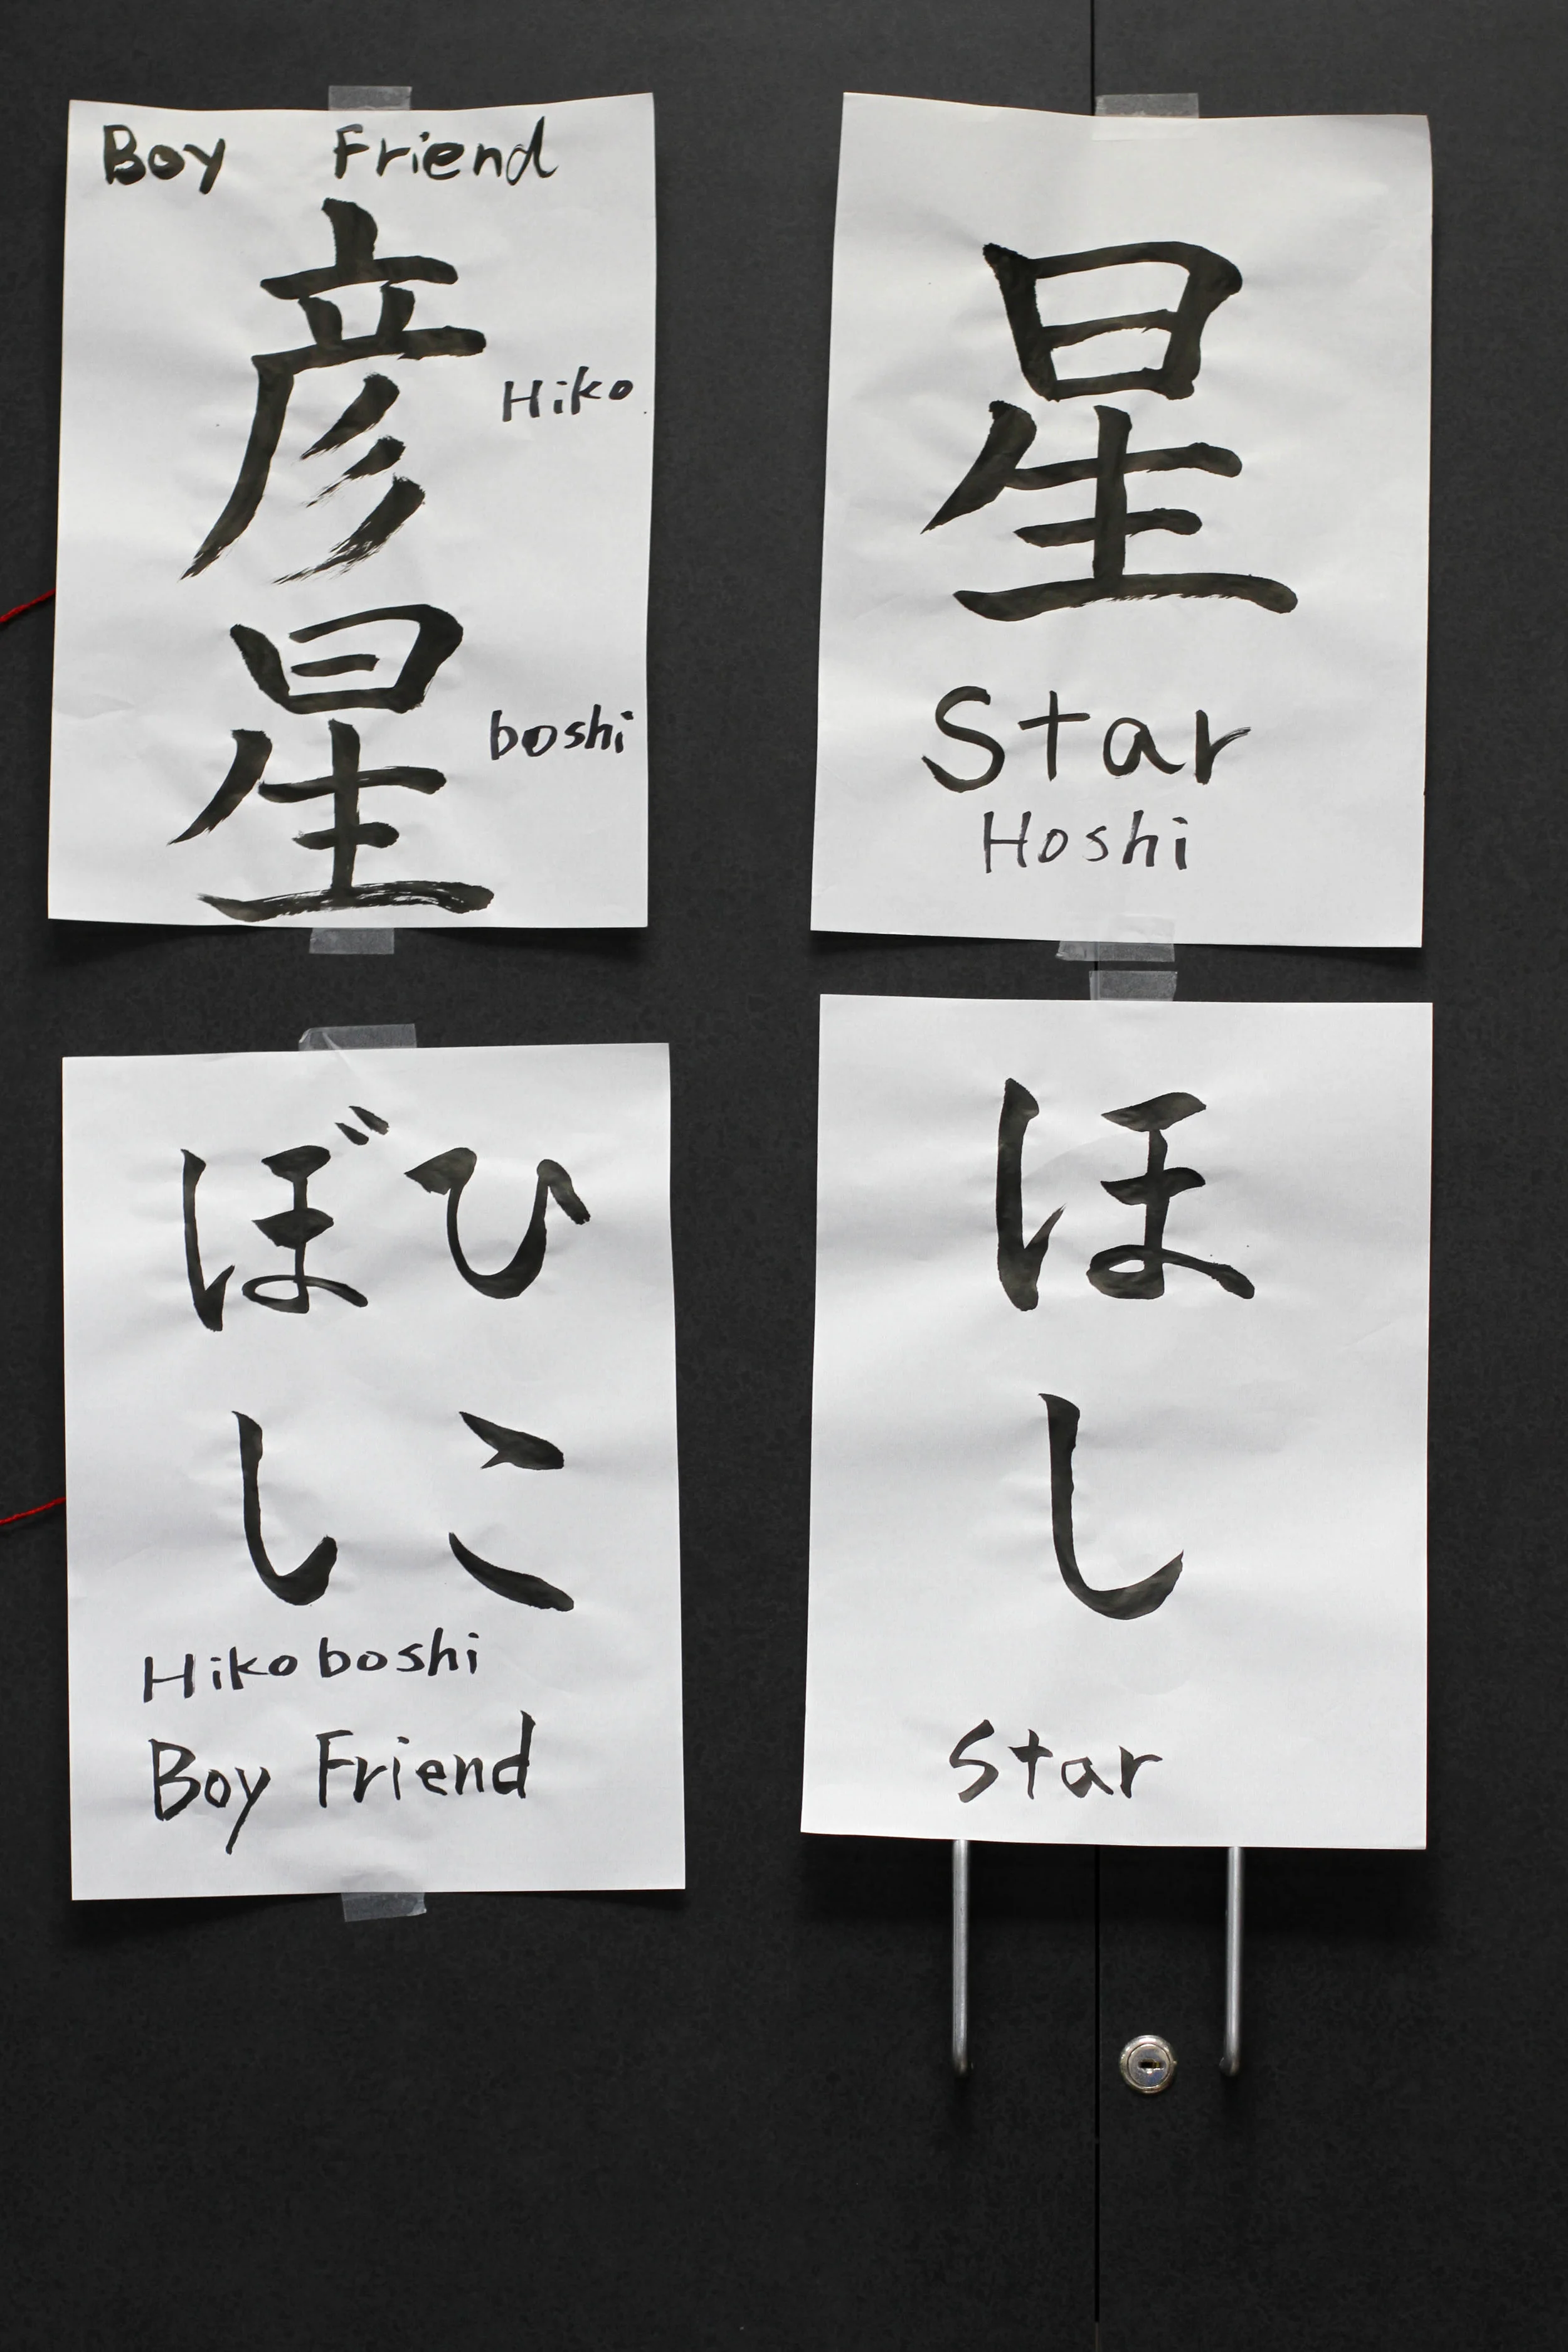 Boy Friend
彦星
Hiko
boshi
星
Star
Hoshi
ひこ
ぼし
Hikoboshi
Boy Friend
ほし
Star